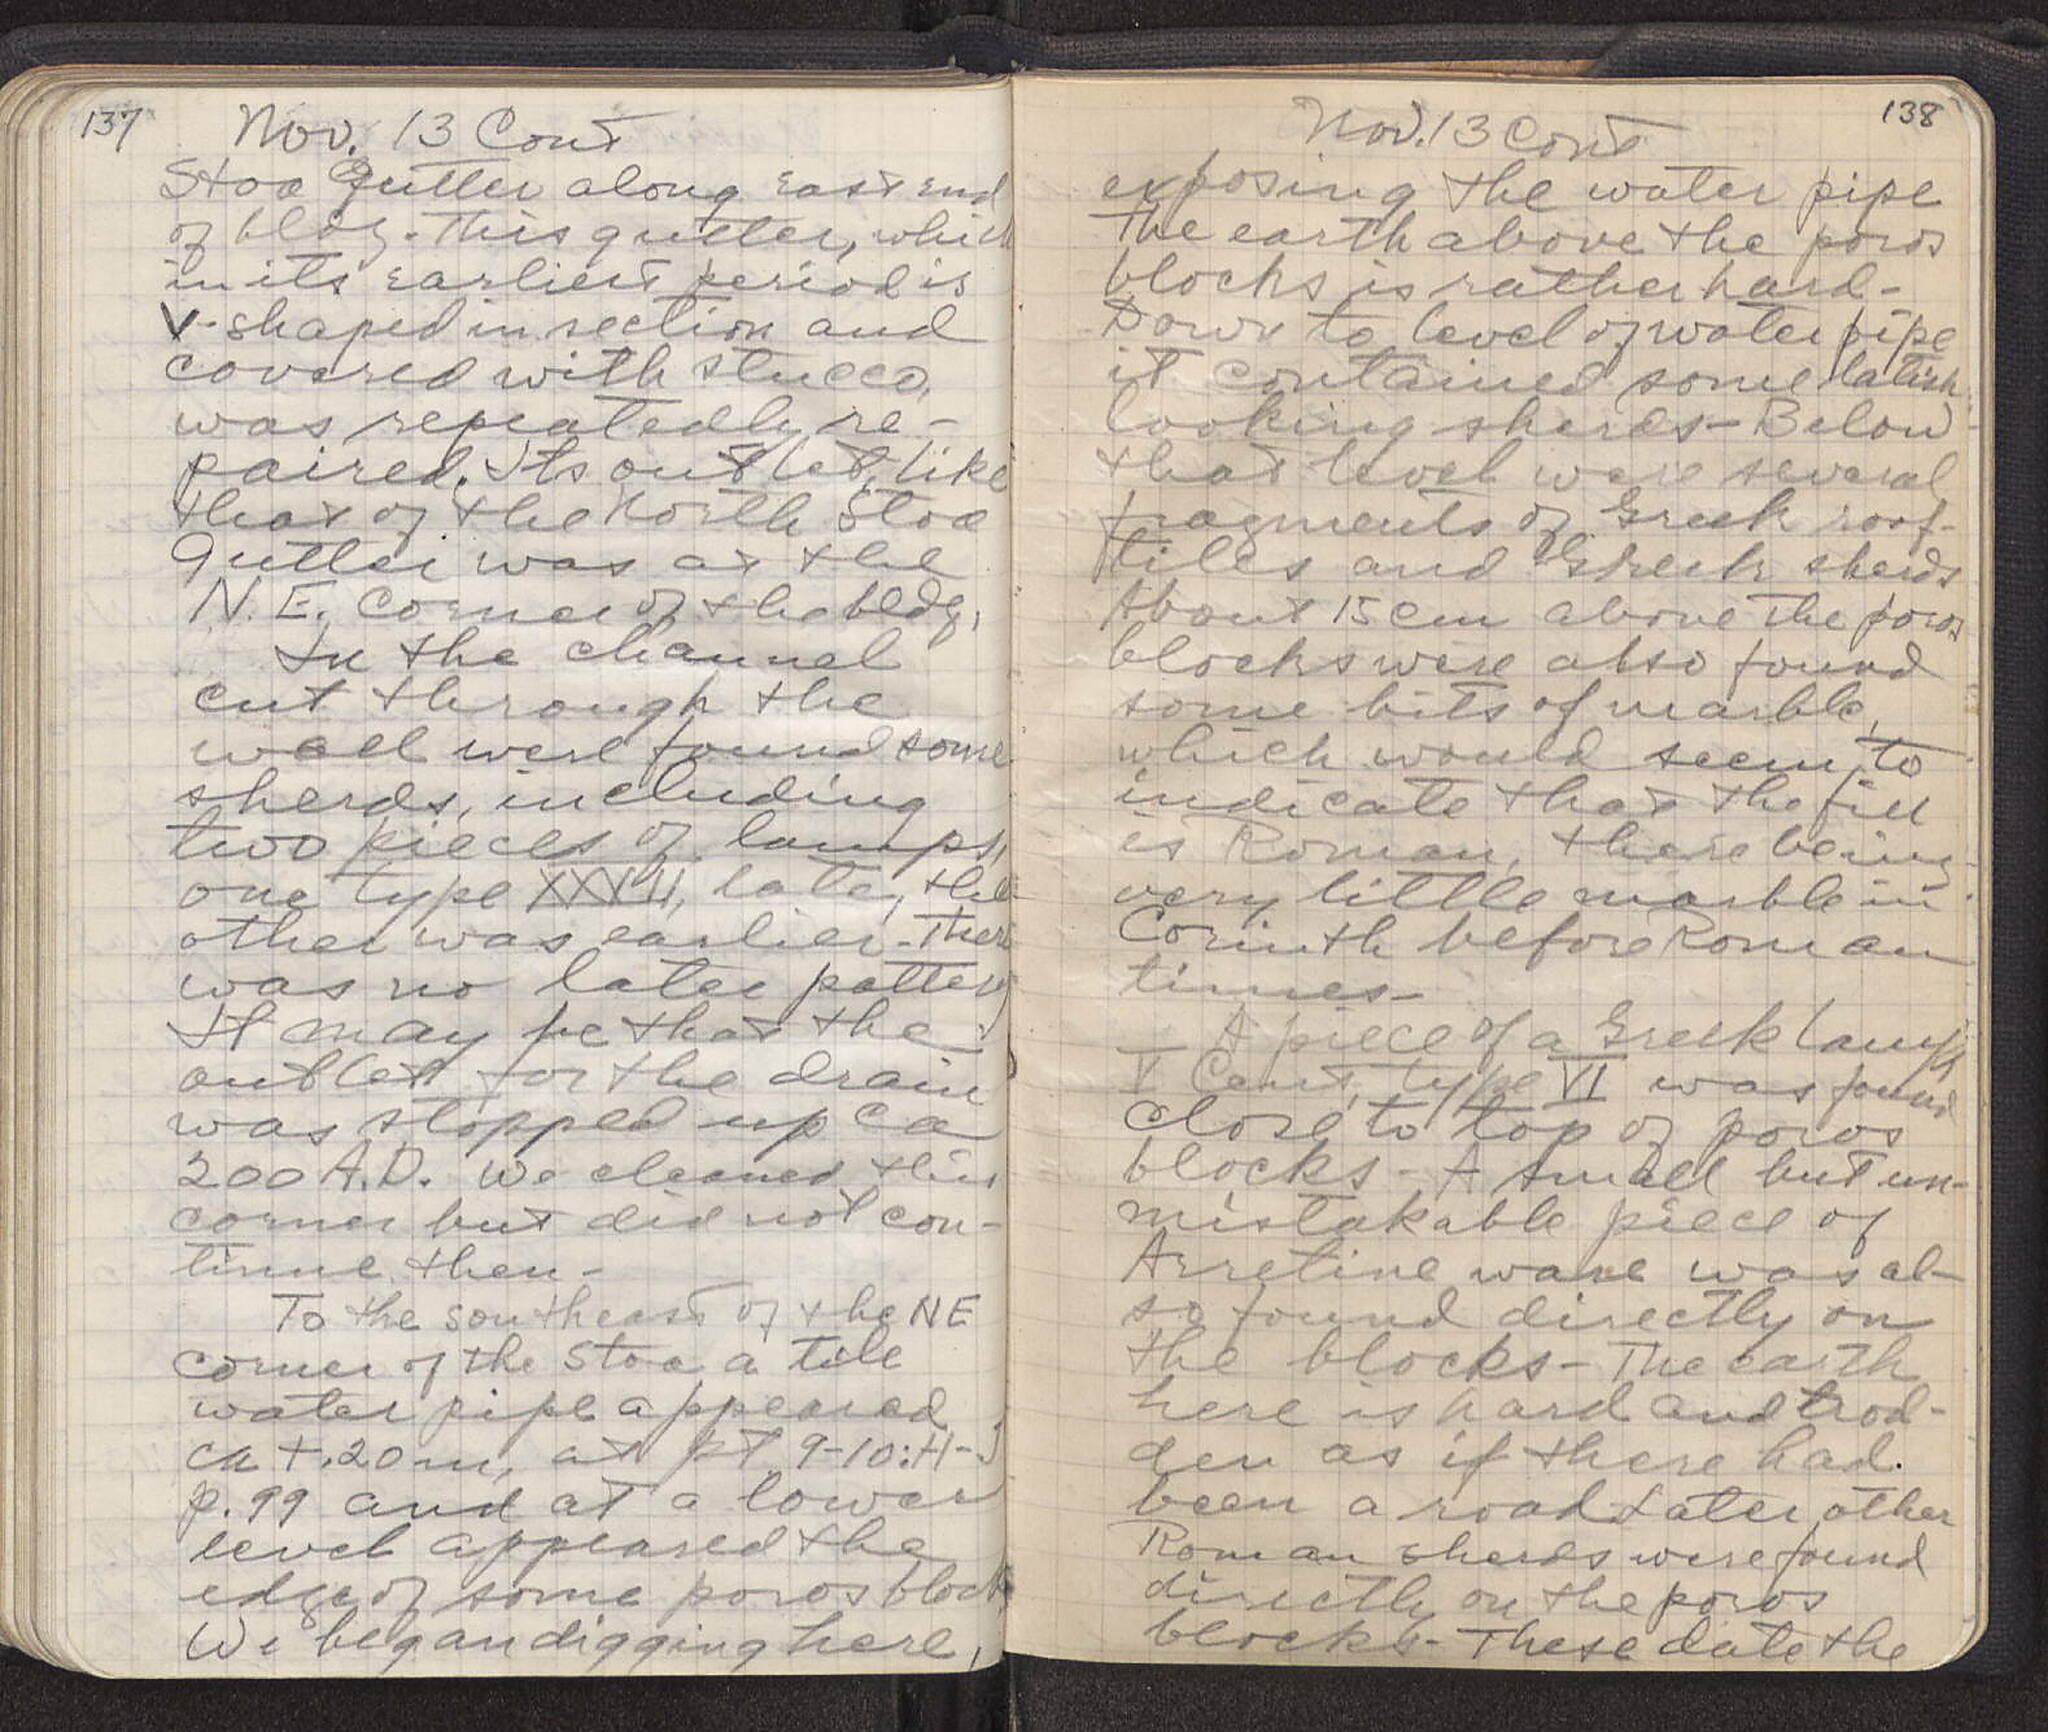 137
Nov. 13 Cont
Stoa gutter along east end
of bldg. This gutter, which
in its earliest period is
V-shaped in section and
covered with stucco,
was repeatedly re-
paired. Its outlet, like
that of the North Stoa
gutter was at the
N.E. corner of the bldg.
In the channel
cut through the
wall were found some
sherds, including
two pieces of lamps,
one type XXVII, late, the
other was earlier. There
was no later pottery
It may be that the
outlet for the drain
was stopped up ca
200 A.D. We cleaned this
corner but did not con-
tinue then-
To the southeast of the NE
corner of the Stoa a tile
water pipe appeared
ca +.20m, at pt 9-10:H-J
p.99 and at a lower
level appeared the
edge of some poros blocks
We began digging here,
138
Nov. 13 Cont
exposing the water pipe
The earth above the poros
blocks is rather hard-
Down to level of water pipe
it contained some latish
looking sherds- Below
that level were several
fragments of Greek roof-
tiles and Greek sherds
About 15 cm above the poros
blocks were also found
some bits of marble,
which would seem to
indicate that the fill
is Roman, there being
very little marble in
Corinth before Roman
times-
A piece of a Greek lamp
V Cent, type VI was found
close to top of poros
blocks- A small but un-
mistakable piece of
Arretine ware was al-
so found directly on
the blocks- The earth
here is hard and trod-
den as if there had
been a road Later other
Roman sherds were found
directly on the poros
blocks- These date the